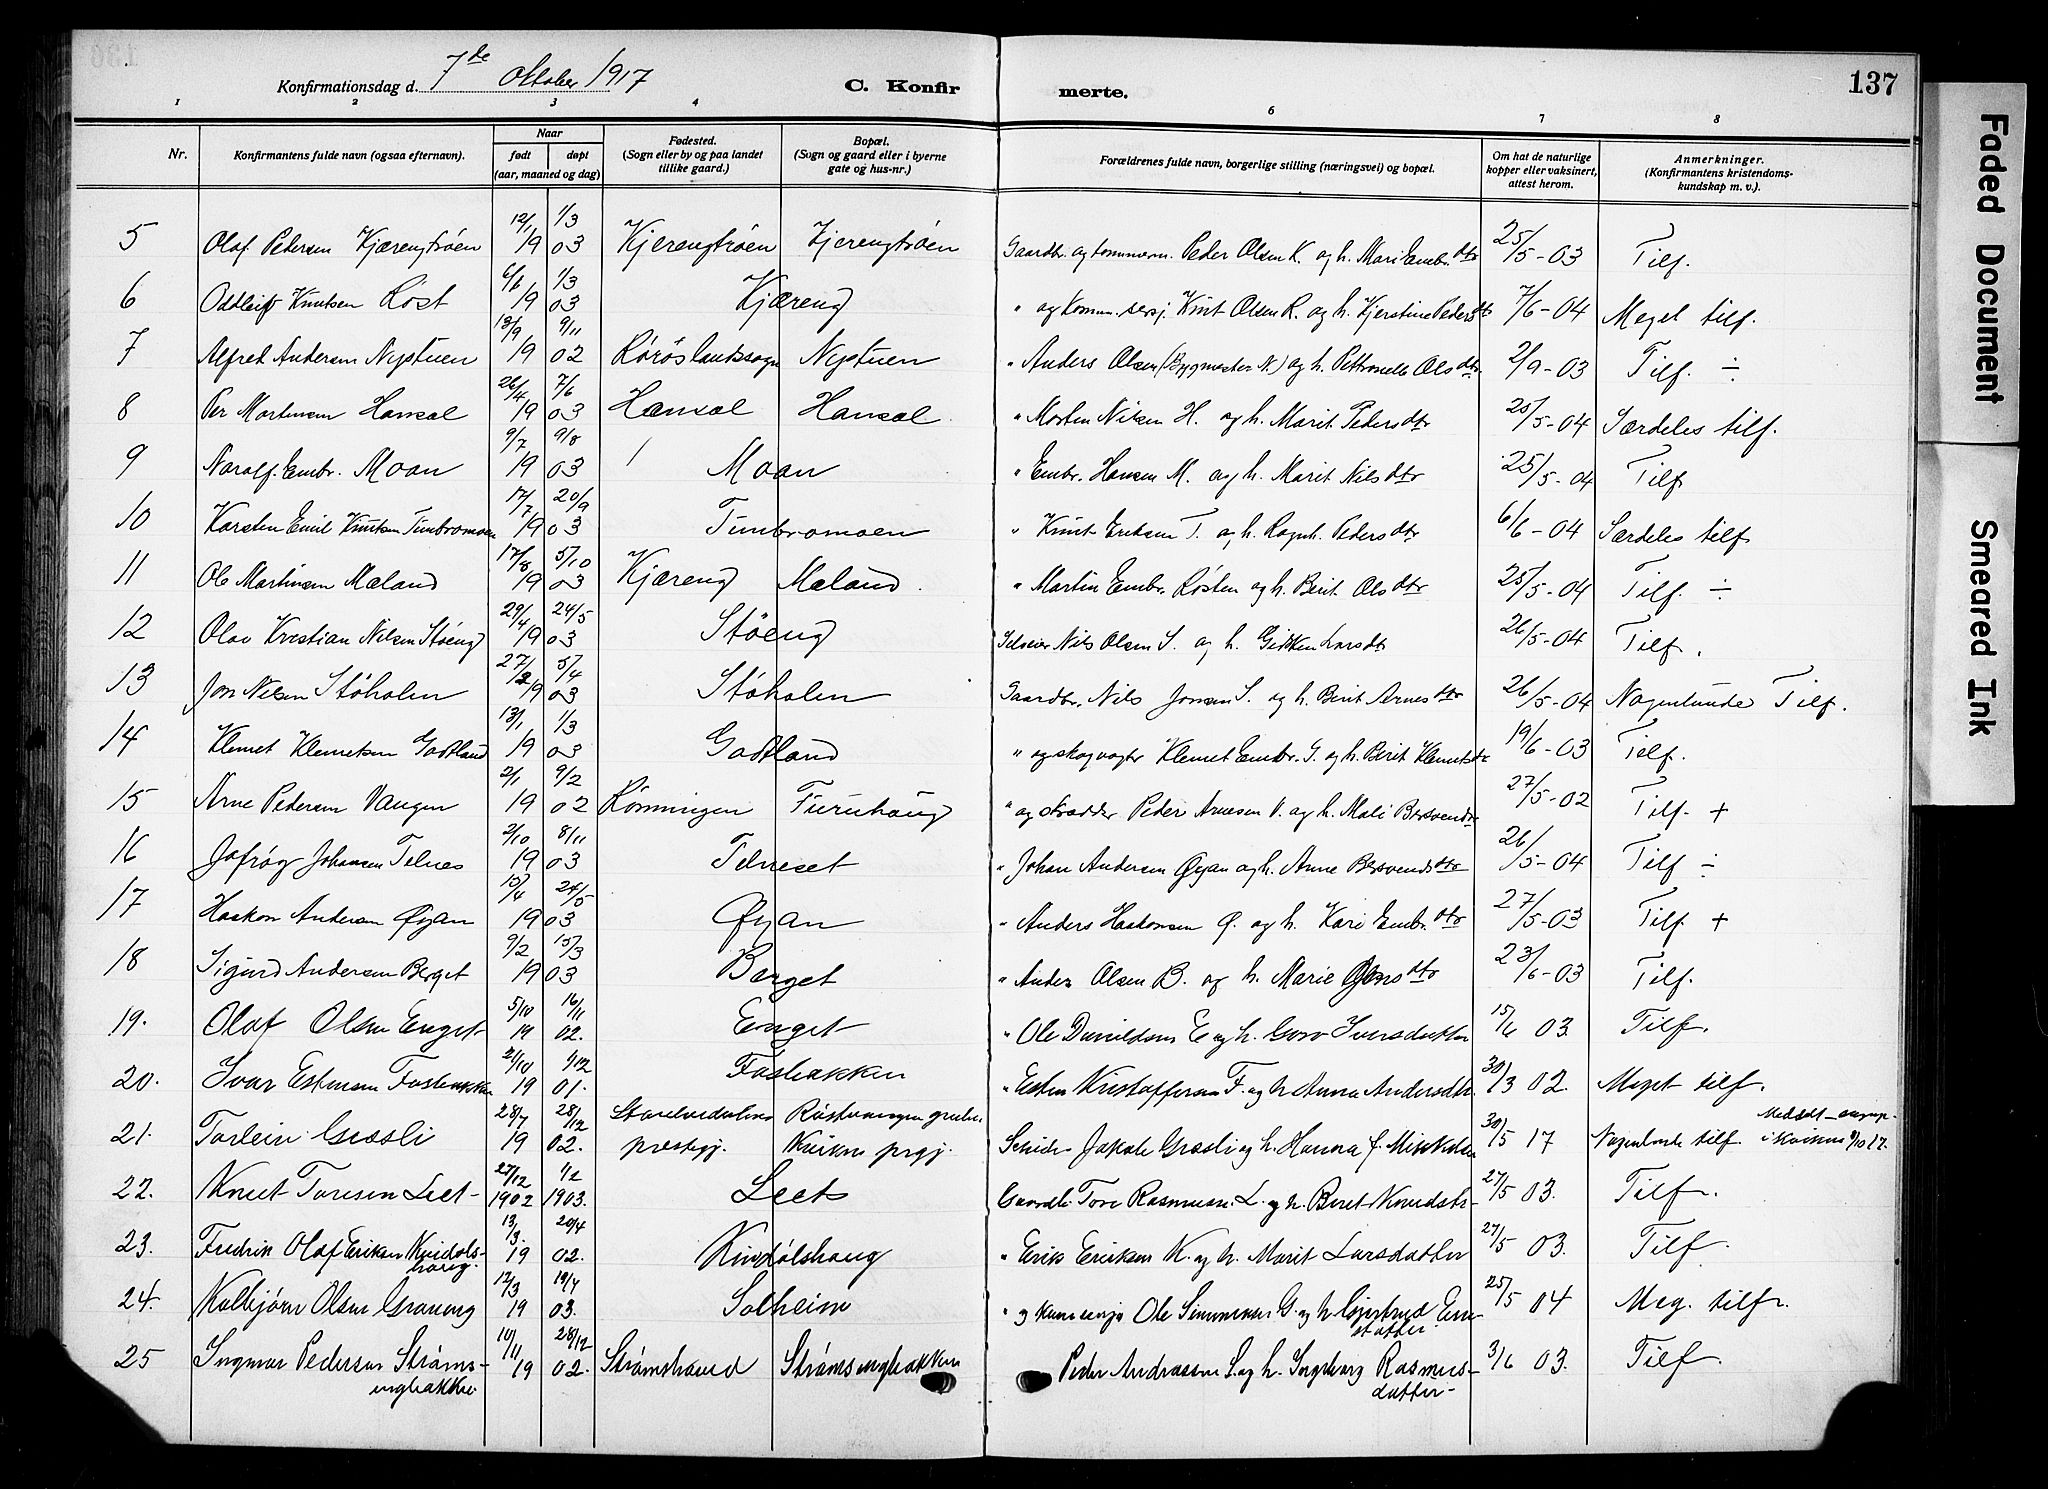 137
Konfirmationsdag d. 7de Oktober 1917
C. Konfirmerte.
1 2 3 4 5 6 7 8
Nr.
Konfirmantens fulde navn (ogsaa efternavn).
Naar
født døpt
(aar, maaned og dag)
Fødested.
(Sogn eller by og paa landet
tillike gaard.)
Bopæl.
(Sogn og gaard eller i byerne
gate og hus-nr.)
Forældrenes fulde navn, borgerlige stilling (næringsvei) og bopæl.
Om hat de naturlige
kopper eller vaksinert,
attest herom.
Anmerkninger.
(Konfirmantens kristendoms-
kundskap m. v.).
5 Olaf Pedersen Kjærengtrøen 12/1 1903 1/3 Kjerengtrøen Kjerengtrøen Gaardbr. og kommem. Peder Olsen K. og h. Mari Embr.dtr 25/5-03 Tilf.
6 Oddleif Knutsen Røst 6/1 1903 1/3 Kjæreng " og komm. Knut Olsen R. og h. Kjerstine Pedersdtr 7/6-04 Meget tilf.
7 Alfred Andersen Nyptuen 13/9 1902 9/11 Rörös landssogn Nyptuen " Anders Olsen (Bygmester N.) og h. Petronelle Olsdtr 2/9-03 Tilf. ÷
8 Per Mortensen Hansæl 26/4 1903 7/6 Hansæl Hansæl. " Morten Nilsen H. og h. Marit Pedersdtr 25/5-04 Særdeles tilf.
9 Naralf. Embr. Moan 9/7 1903 9/8 Moan " Embr. Hansen M. og h. Marit Nilsdtr 25/5-04 Tilf
10 Karsten Emil Knutsen Timbromoen 17/7 1903 20/9 Timbromoen " Knut Eriksen T. og h. Ragnh. Pedersdtr 6/6-04 Særdeles tilf
11 Ole Martinsen Mæland 17/8 1903 5/10 Kjæreng Mæland. " Martin Embr. Røsten og h. Berit Olsdtr 25/5-04 Tilf. ÷
12 Olav Kristian Nilsen Støeng 29/4 1903 24/5 Støeng Nils Olsen S. og h. Gikken Larsdtr 26/5-04 Tilf.
13 Jon Nilsen Støholen 27/2 1903 5/4 Støholen Gaardbr. Nils Jonsen S. og h. Berit Arnesdtr 26/5-04 Nogenlunde Tilf.
14 Klemet Klemetsen Godtland 13/1 1903 1/3 Godtland " og skogvogter Klemet Embr. G. og h. Berit Klemetsdtr 19/6-03 Tilf.
15 Arne Pedersen Vangen 2/1 1902 9/2 Rønningen Furuhaug " og skrædder Peder Arnesen V. og h. Mali Bersvendsdtr 27/5-02 Tilf. +
16 Johansen Telnes 2/10 1903 8/11 Telneset " Johan Andersen Øyan og h. Anne Bersvendsdtr 26/5-04 Tilf ÷
17 Haakon Andersen Øyan 15/4 1903 24/5 Øyan " Anders Haakonsen Ø. og h. Kari Embr.dtr 27/5-03 Tilf. +
18 Sigurd Andersen Berget 9/2 1903 15/3 Berget " Anders Olsen B. og h. Marie 23/6-03 Tilf.
19. Olaf Olsen Enget 5/10 1902. 16/11 Enget " Ole Danildsen E og h. Goro Iversdatter 15/6 03. Tilf.
20. Ivar Estensen Fosbakken 21/10 1901. 1/12 Fosbakken " Esten Kristoffersen F. og h Anna Andersdtr. 30/3 02. Meget tilf.
21. Torlein Græsli 28/7 1902. 28/12 Storelvedalens prestegj. Røstvangen gruber Kvikne prgj. Jakob Græsli og h. Hanna f. Mikkelsen 30/5 17 Nogenlunde tilf. i Kvikne 9/10 17.
22. Knut Toresen Leet 27/12 1902 1/2 1903. Leet Gaardb. Tore Rasmusen L. og h. Beret Knudsdtr 27/5 03. Tilf.
23. Fredrik Olaf Eriksen Knidals- haug. 13/3 1902. 20/4 Kindølshaug " Erik Eriksen K. og h. Marit Larsdatter 27/5 03. Tilf.
24. Kolbjørn Olsen Graneng 12/3 1903. 19/4 Solheim " og Ole Simonsen G. og h. Gjertrud datter 25/5 04 Meg. tilf.
25 Ingmar Pedersen Strøms- engbakken 10/11 1902. 28/12 Strømstrand Strømsengbakken Peder Andreassen S. og h. Ingeborg Rasmus- datter 3/6 03. Tilf.
Faded Document
Smeared Ink